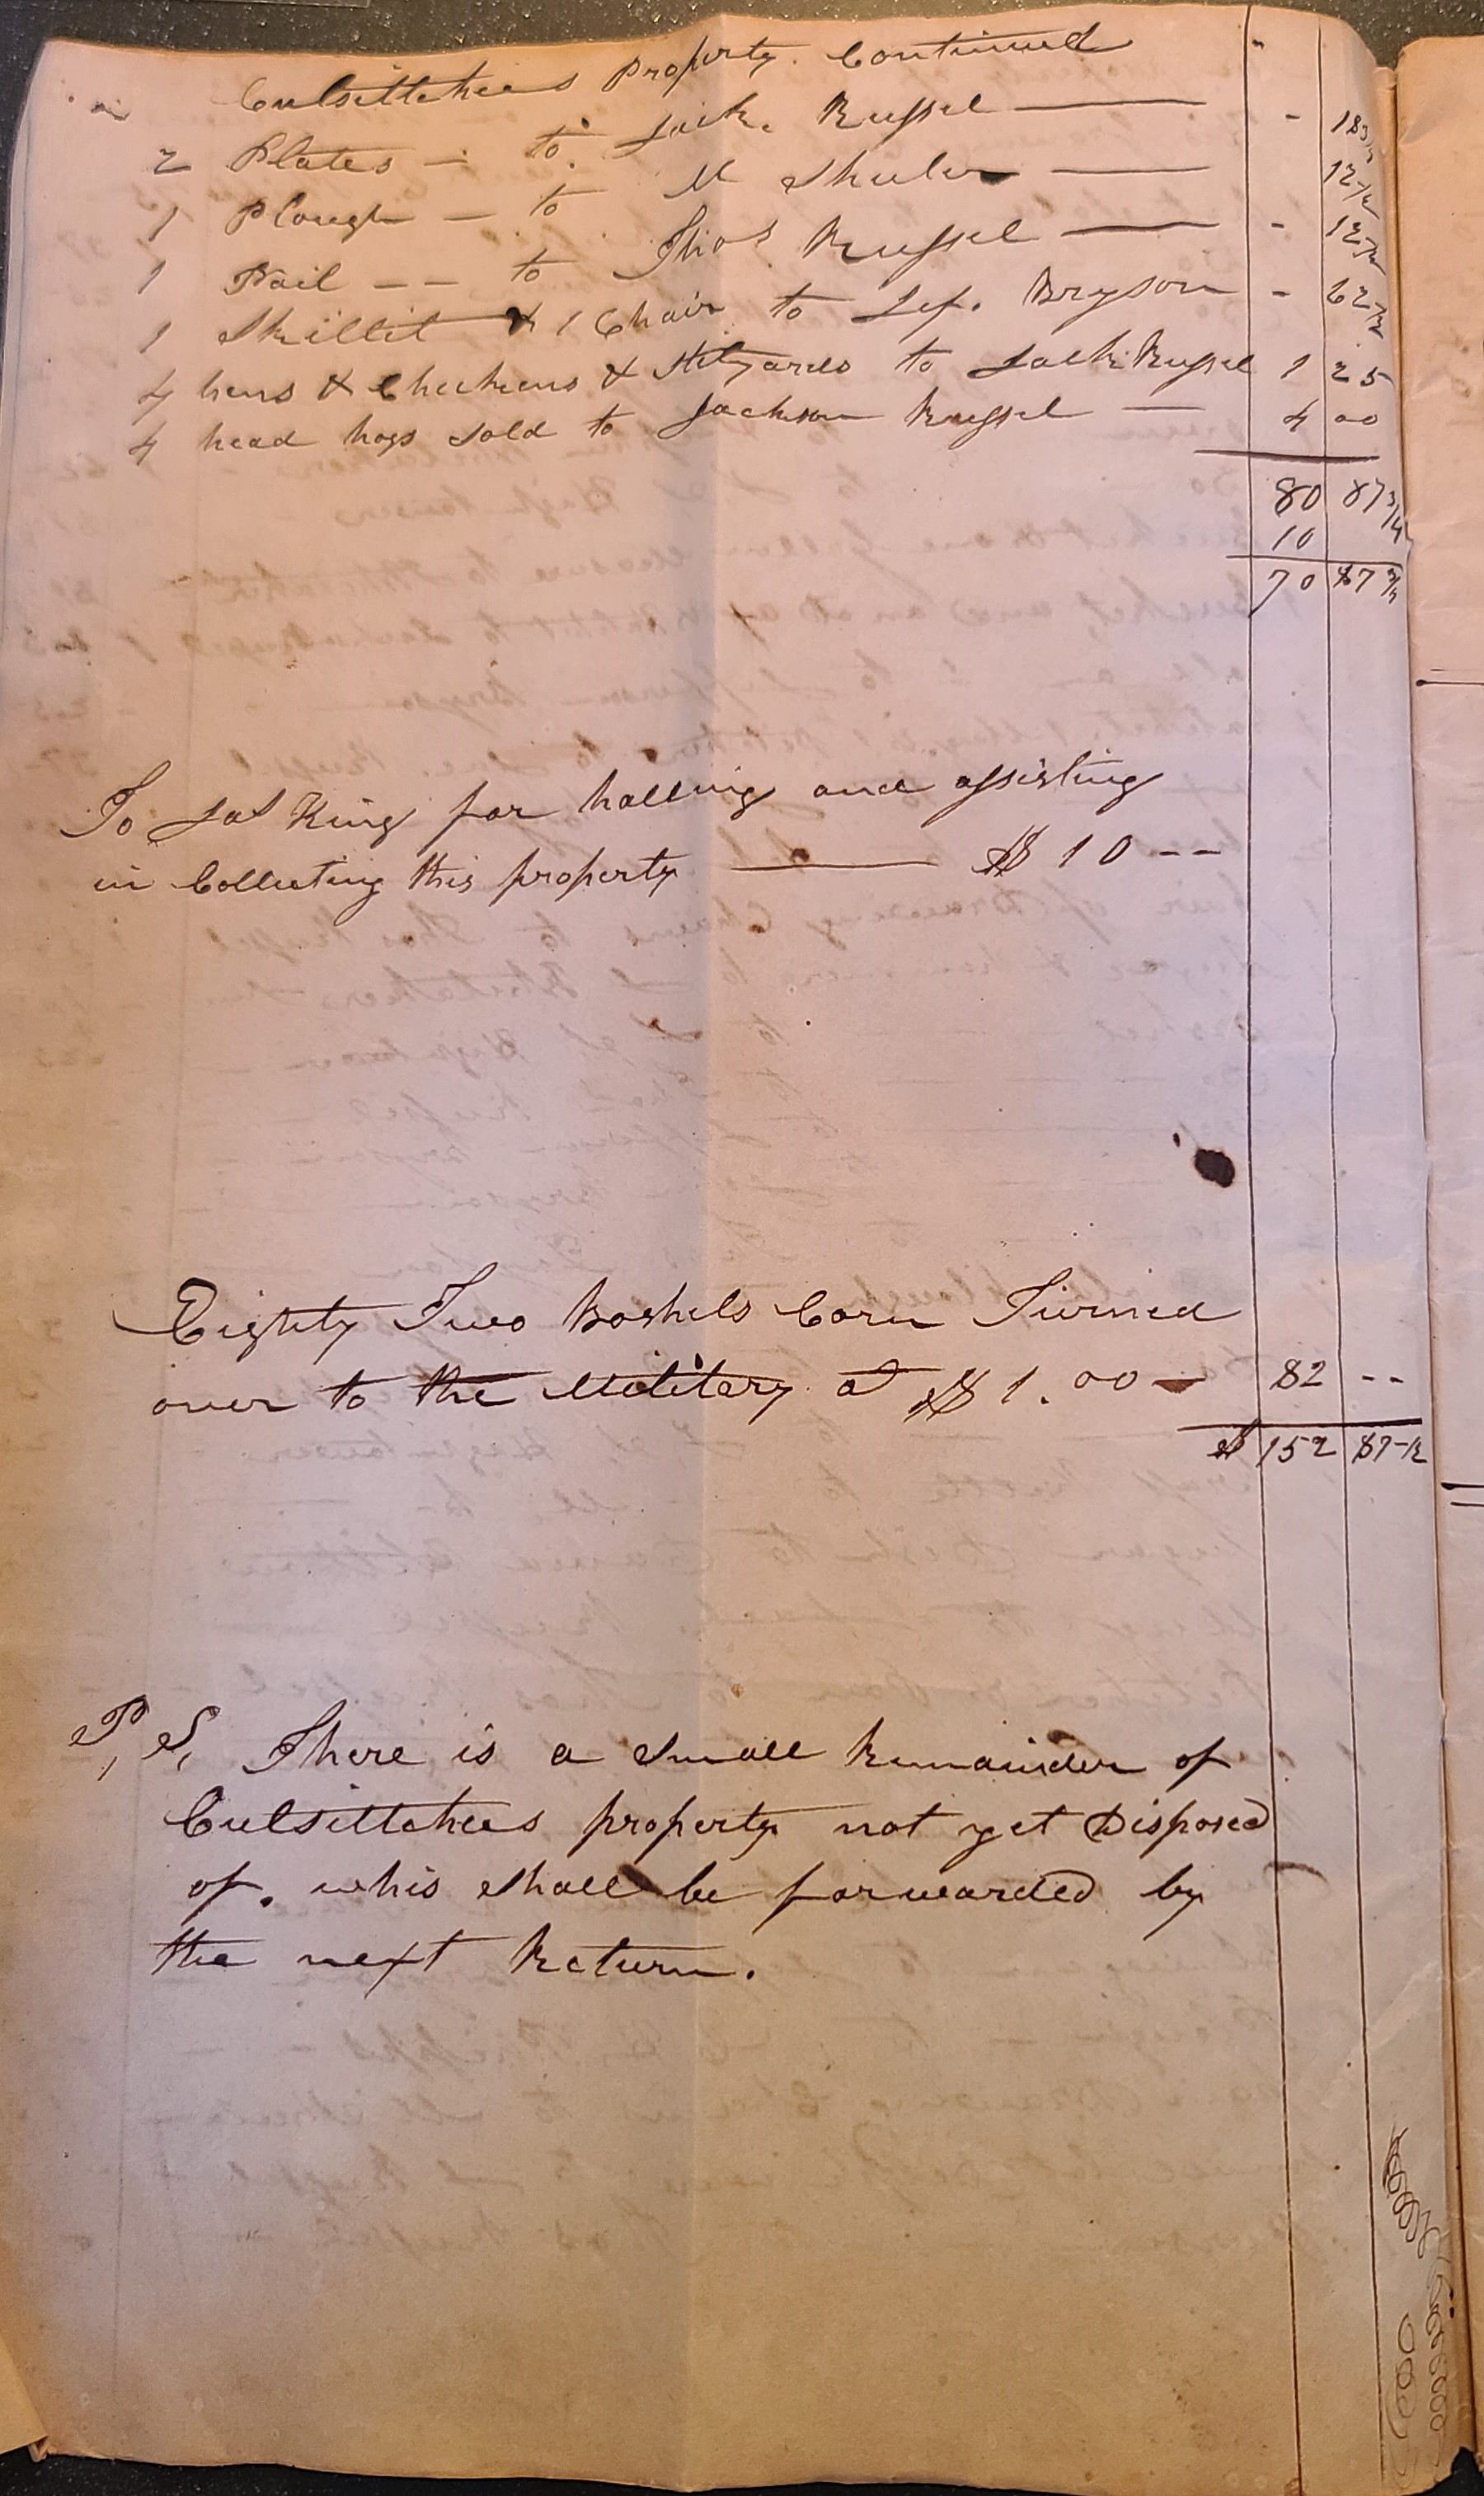 Culsittehees Property. Continued
2 Plates — to. Jack. Russel — - 18 3/4
1 Plough — to M Shuler — 12 1/2
1 Pail -- to Thos Russel — - 12 1/2
1 Skillit & 1 Chair to Jef. Bryson - 62 1/2
4 hens & Checkens & Stilyards to Jack Russel 1 25
4 head hogs sold to Jackson Russel — 4 00
80 87 3/4
10
70 87 3/4
To Jas King for halling and assisting
in Collecting this property — $ 10 --
Eighty Two Boshels Corn Turned
over to the Militery a $ 1.00 — 82 --
$ 152 87 1/2
P, S, There is a small Remainder of
Culsittehees property not yet Disposed
of. whis shall be forwarded by
the next Return.